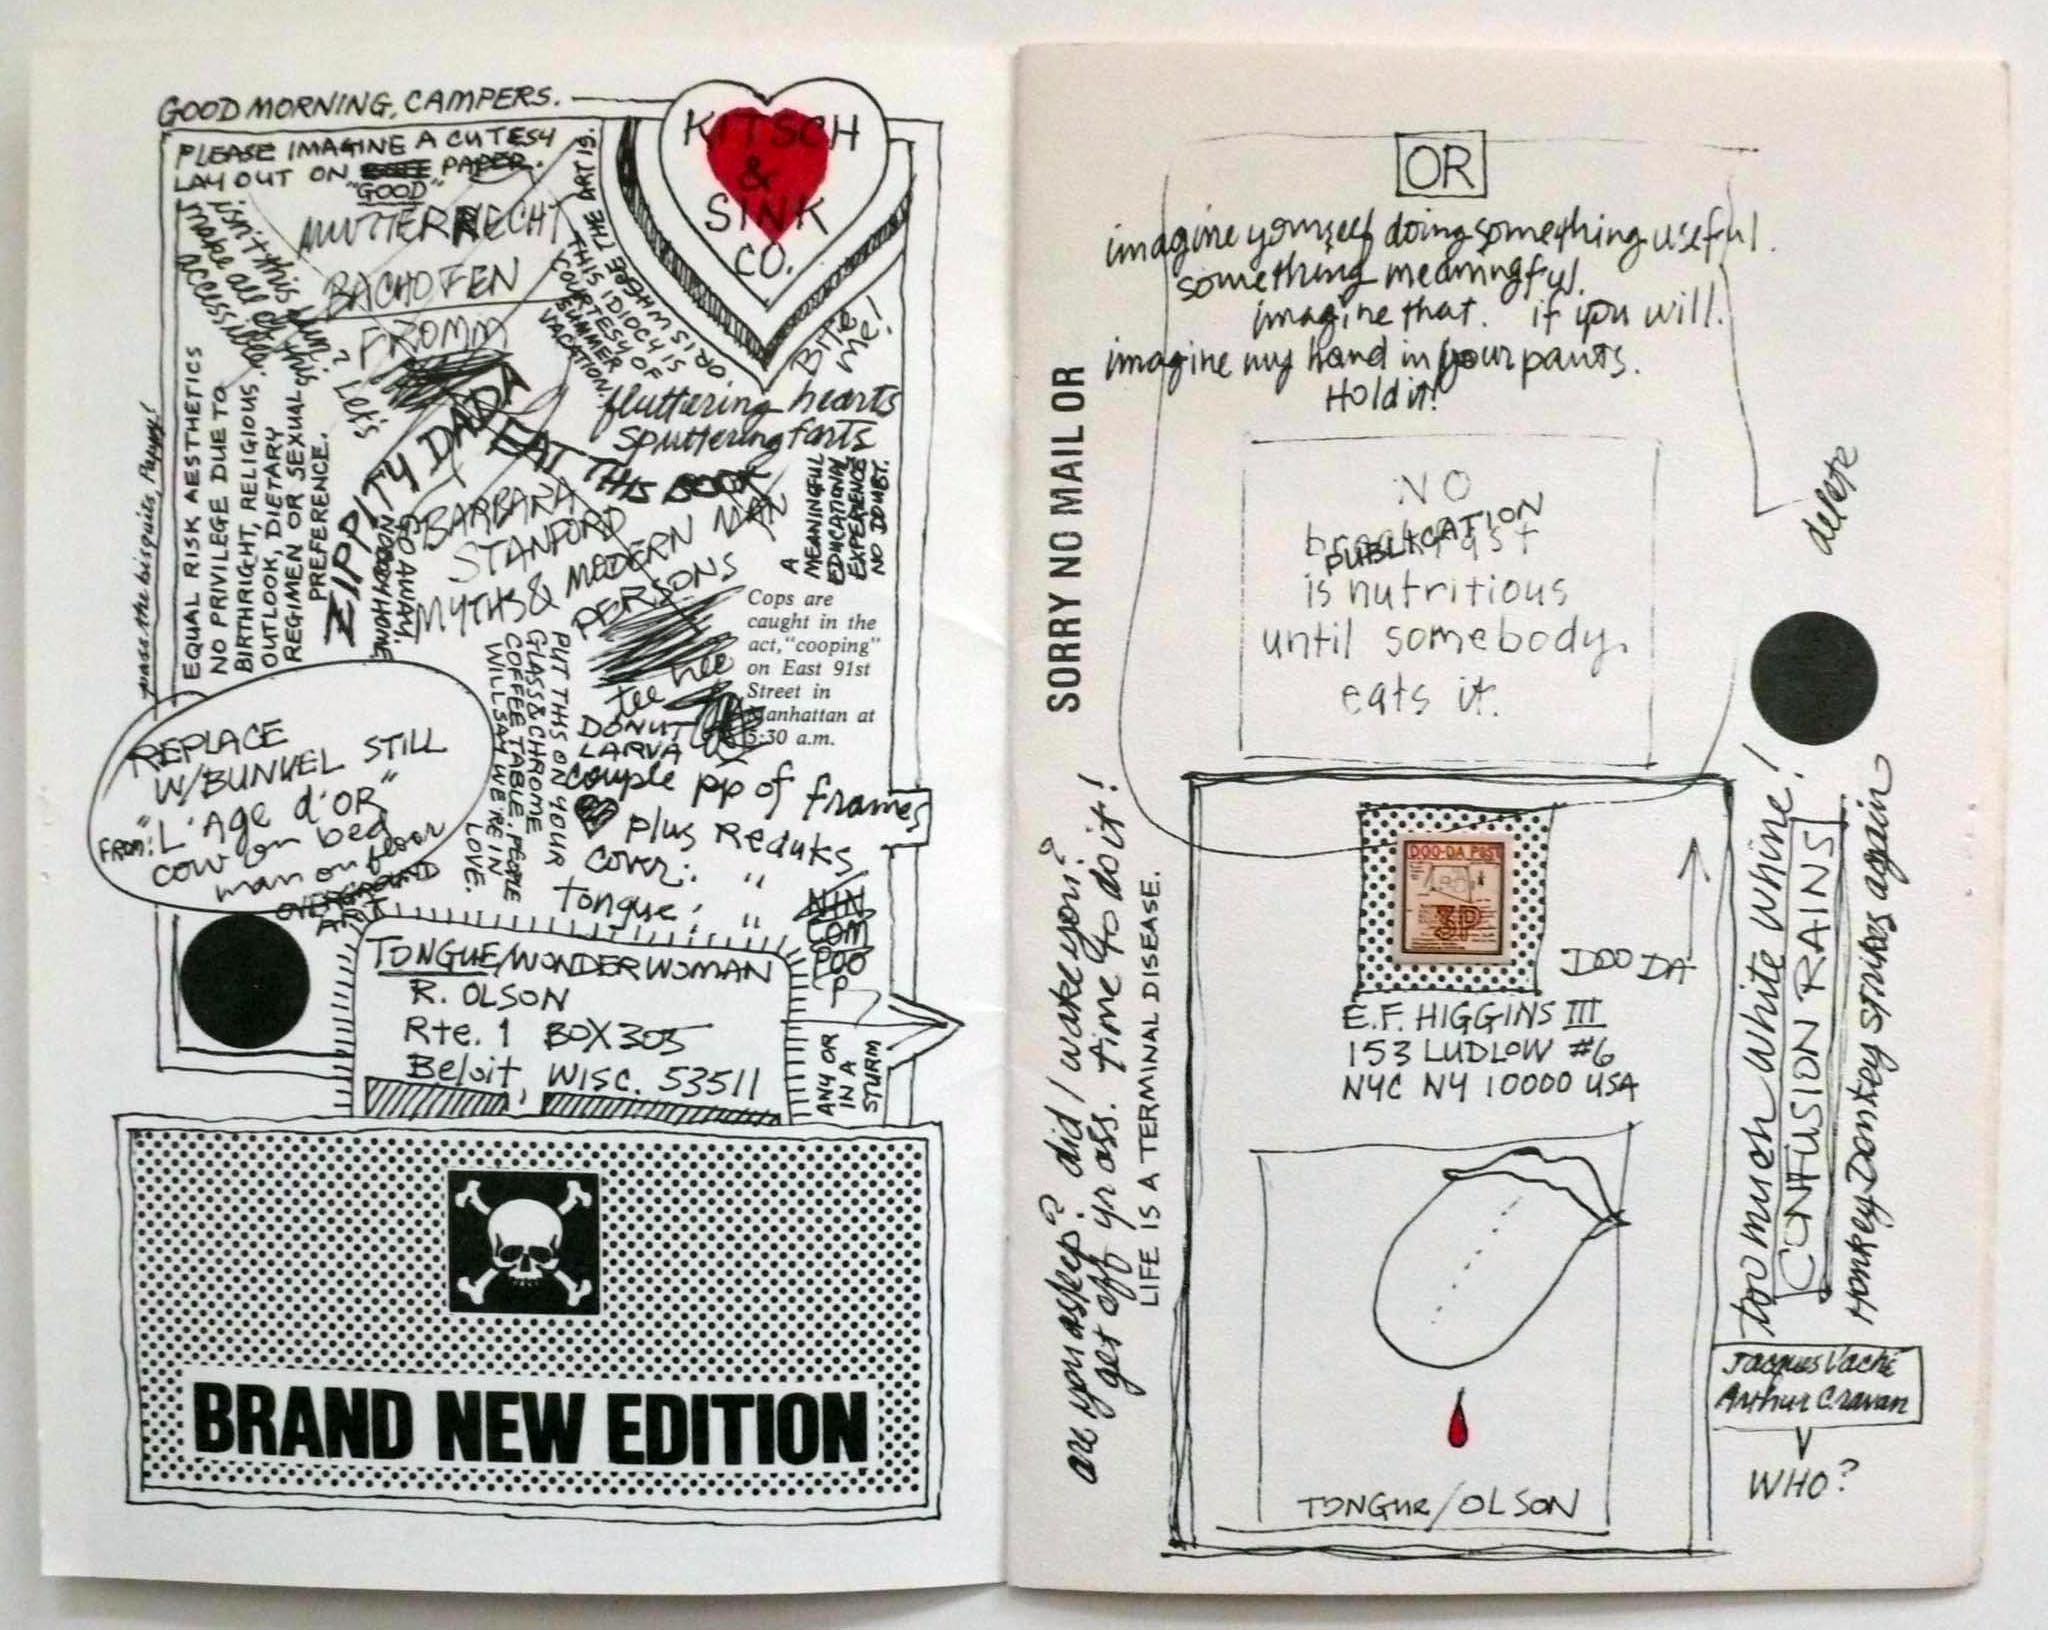 GOOD MORNING, CAMPERS.
KITSCH
&
SINK
CO.
PLEASE IMAGINE A CUTESY
LAY OUT ON PAPER.
"GOOD"
isn't this fun? Let's
make all of this
accessible.
MUTTERRECHT
BACHOFEN
FROMM
ART IS.
OR IS WHERE THE
THIS IDIOCY IS
COURTESY OF
SUMMER
VACATION.
BITE
ME!
fluttering hearts
sputtering farts
pass the bisquits, Pappy!
EQUAL RISK AESTHETICS
NO PRIVILEGE DUE TO
BIRTHRIGHT, RELIGIOUS
OUTLOOK, DIETARY
REGIMEN OR SEXUAL
PREFERENCE.
ZIPPITY DADA
EAT THIS BOOK
GO AWAY,
BARBARA
STANFORD
MYTHS & MODERN MAN
PERSONS
A
MEANINGFUL
EDUCATIONAL
EXPERIENCE
NO DOUBT.
Cops are
caught in the
act, "cooping"
on East 91st
Street in
Manhattan at
5:30 a.m.
tee hee
DONUT
LARVA
PUT THIS ON YOUR
GLASS & CHROME
COFFEE TABLE. PEOPLE
WILL SAY WE'RE IN
LOVE.
couple pp of frames
plus Reduks
cover: "
tongue: "
REPLACE
W/BUNUEL STILL
FROM: "L'Age d'OR"
cow on bed
man on floor
OVERGROUND
ART
NIN
COM
POO
P
TONGUE/WONDER WOMAN
R. OLSON
Rte. 1 BOX 305
Beloit, WISC. 53511
ANY OR
IN A
STURM
BRAND NEW EDITION
OR
imagine yourself doing something useful.
something meaningful.
imagine that. if you will.
imagine my hand in your pants.
Hold it!
SORRY NO MAIL OR
NO
breakfast
PUBLICATION
is nutritious
until somebody
eats it.
delete
are you asleep? did I wake you?
get off yr ass. time to do it!
LIFE IS A TERMINAL DISEASE.
DOO-DA POST
3P
DOO DA
E.F. HIGGINS III
153 LUDLOW #6
NYC NY 10000 USA
TONGUE/OLSON
too much white whine!
CONFUSION RAINS
Honkey Donkey strikes again
Jacques Vaché
Arthur Cravan
WHO?